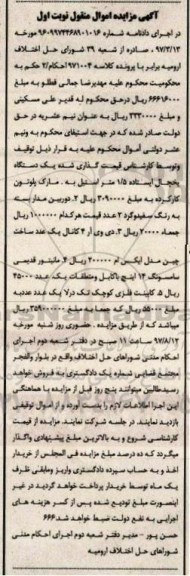 آگهی مزایده اموال منقول نوبت اول
در اجرای دادنامه شماره ۹۶۰۹۹۷۴۴۶۸۹۰۱۰۱۶ مورخه
۹۷/۲/۱۳ صادره از شعبه ۳۹ شورای حل اختلاف
ارومیه برابر با پرونده کلاسه ۹۷۱۰۰۴ احکام/۲ حکم به
محکومیت محکوم علیه مهدیرضا جمالی قطلو به مبلغ
۶۶۶۱۶۰۰۰ ریال درحق محکوم له قدیر علی مسکینی
و به مبلغ ۳۳۳۰۰۰۰ ریال به عنوان نیم عشریه در حق
دولت صادر شده که در جهت استیفای محکوم به ونیم
عشر دولتی اموال محکوم علیه به قرار ذیل توقیف
وتوسط کارشناس قیمت گذاری شده یک دستگاه
یخچال ایستاده ۱/۵ متر استیل به . مارک پلوتون
کارکرده به مبلغ ۳۰۹۰۰۰۰۰ ریال ۲. دوربین مدار بسته
به رنگ سفیدوکرم ۲ عدد قیمت هرکدام ۱۰۰۰۰۰۰ ریال
جمعاء ۲۰۰۰۰ ریال ۳. دی وی آر ۴ کانال یک عدد ساخت
چین مدل ایکس ام ۲۰۰۰۰۰۰ ریال ۴. مانیتور قدیمی
سامسونگ ۱۴ اینچ باکابل ومتعلقات یک عدد ۴۵۰۰۰۰
ریال ۵. کابینت فلزی کوچک تک درلا یک عدد عدبه
مبلغ ۵۵۰۰۰۰ ریال که جمعاء به مبلغ ۳۵۹۰۰۰۰۰ ریال
میباشد که از طریق مزایده . حضوری روز شنبه مورخه
۹۷/۸/۱۲ ساعت ۱۱ صبح در دفتر شعبه دوم اجرای
احکام مدنی شوراهای حل اختلاف واقع در بلوار والفجر
مجتمع قضایی شماره یک دادگستری به فروش خواهد
رسیدطالبین میتوانند پنج روز قبل از مزایده با هماهنگی
این اجرا اطلاعات لازم را بدست آورده و از اموال توقیفی
بازدید نمایند. در جلسه شرکت نمایند. مزایده از قیمت
کارشناسی شروع و به بالاترین مبلغ پیشنهادی واگذار
میگردد که ده درصد مبلغ مزایده فی المجلس از خریدار
اخذ و به حساب سپرده دادگستری واریز ومابقی ظرف
یک ماه توسط خریدار پرداخت خواهد گردید در غیر
اینصورت مبلغ تودیع شده پس از کسر هزینه های
اجرایی به نفع دولت ضبط خواهد شد۶۶۶
حسن پور - مدیر دفتر شعبه دوم اجرای احکام مدنی
شوراهای حل اختلاف ارومیه